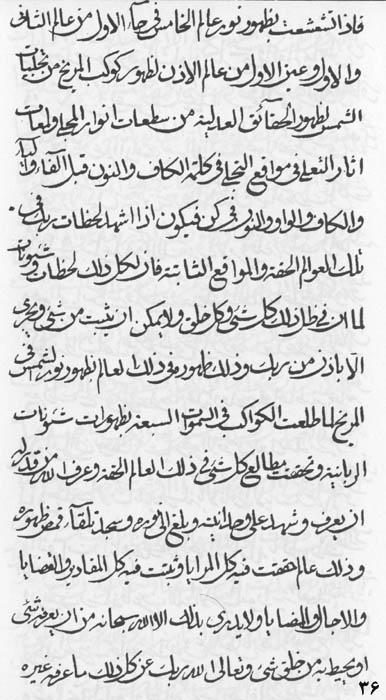 فاذا تشعشعت بظهور نور عالم الخامس في حاء الاول من عالم الثاني
والاول وعين الاول من عالم الاذن لظهور كوكب المريخ من تجليات
الشمس لظهور الحقائق العدلية من سطعات انوار المجلي ولمعات
اثار التعلي في مواقع التجلي في كلمة الكاف والنون قبل الفاء والياء
والكاف والواو والنون في كن فيكون اذا اشهد لحظات ربك في
تلك العوالم الحقة والمواقع الثابتة فان لكل ذلك لحظات وشئونات
لما ان في ظل ذلك كل شئ وكل خلق ولا يمكن ان يثبت من شئ ويجري
الا باذن من ربك وذلك ظهور في ذلك العالم بظهور نور الشمس في
المريخ لما طلعت الكواكب في السموات السبعة بظهورات شئونات
الربانية وتحققت مطالع كل شئ في ذلك العالم الحقة وعرف الله من قدر له
ان يعرف وشهد على وحدانيته وبلغ الى نوره وسجد تلقاء قمص ظهوره
وذلك عالم حققت فيه كل المرايا وثبتت فيه كل المقادير والقضايا
والاجال والمضايا ولا يدري بذلك الا الله سبحانه من ان يعرفه شئ
او يحيط به من خلق شئ وتعالى الله ربك عن كل ذلك ما عرفه غيره
٣۶